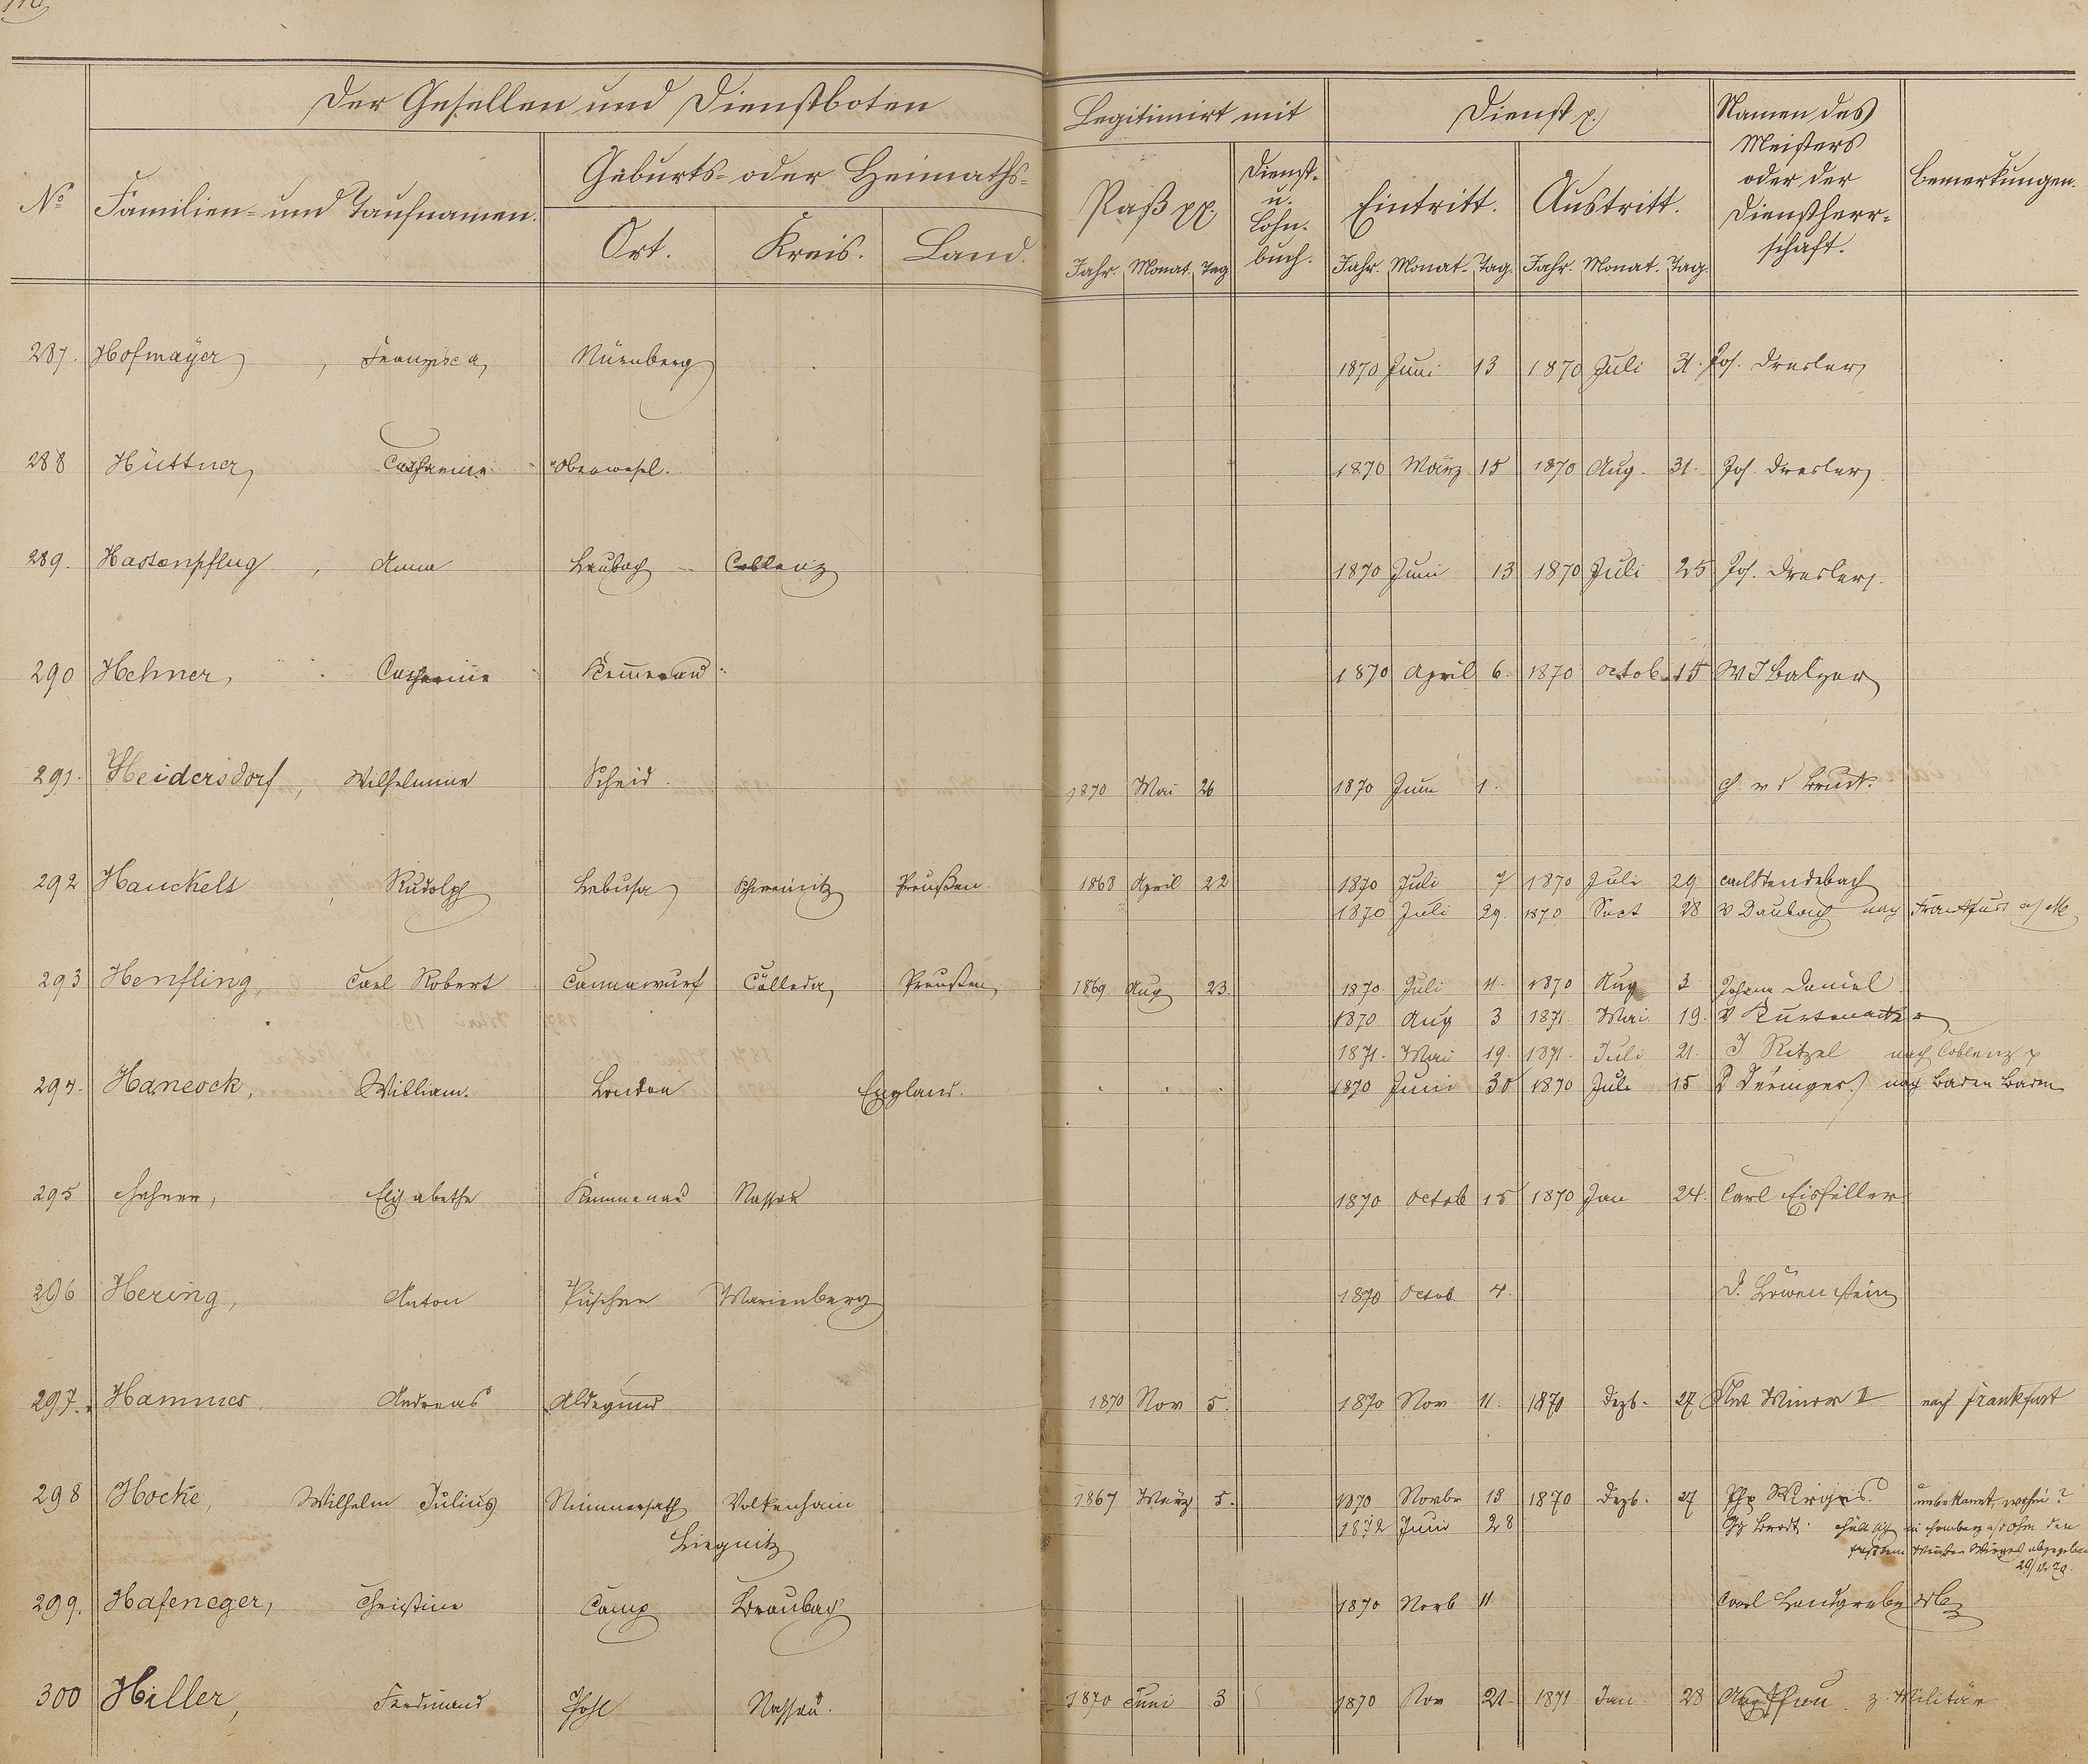 Der Gesellen und Dienstboten
Legitimirt mit
Dienst p.
Namen des Meisters oder der Dienstherrschaft.
Bemerkungen.
No
Familien- und Taufnamen.
Geburts- oder Heimaths-
Ort. Kreis. Land.
Paß pp.
Dienst- u. Lohn-buch.
Eintritt. Austritt.
Jahr. Monat. Tag Jahr. Monat. Tag. Jahr. Monat. Tag.
287. Hofmayer, Franzisca, Nürnberg 1870 Juni 13 1870 Juli 31. Jos. Dresler
288 Hüttner, Catharina Oberwesel. 1870 März 15 1870 Aug. 31. Jos. Dresler
289. Hassenpflug, Anna Laubach Coblenz 1870 Juni 13 1870 Juli 25 Jos. Dresler.
290 Hehner, Catharine Kemmenau 1870 April 6. 1870 Octob 15 W J Balzer
291. Heidersdorf, Wilhelmine Scheid. 1870 Mai 26 1870 Juni 1.
292 Hauckelt, Rudolph Lebusa Schweinitz Preußen. 1868 April 22 1870 Juli 7 1870 Juli 29
1870 Juli 29. 1870 Sept 28 Daubach nach Frankfurt a/M
293 Henfling, Carl Robert Cannawurf Cölleda, Preußen, 1869. Aug 23. 1870 Juli 11. 1870 Aug 3 Johann Daniel
1870 Aug 3 1871. Mai 19.
1871. Mai 19. 1871. Juli 21. J. Ritzel nach Coblenz
294. Hancock, William. London England. 1870 Juni 30 1870 Juli 15 Düringer nach Baden Baden
295 Hehner, Elisabethe Kemmenau Nassau 1870 Octob 15 1870 Jan 24. Carl Eisfeller
296 Hering, Anton Püschen Marienberg 1870 Octob 4. D. Löwenstein
297. Hammes Andreas Aldegund 1870 Nov 5. 1870 Nov 11. 1870 Dezb. 27 Minor II nach Frankfurt
298 Hocke, Wilhelm Julius Nimmersath Volkenhain 1867 März 5. 1870 Novbr 13 1870 Dezb. 27 Wirges. unbekannt wohin?
Liegnitz 1872 Juni 28
299. Hafeneger, Christine Camp Braubach 1870 Novb 11 Carl Landgrebe
300 Hiller, Ferdinand Pohl Nassau. 1870 Juni 3 1870 Nov 21. 1871 Jan 28 z. Militär